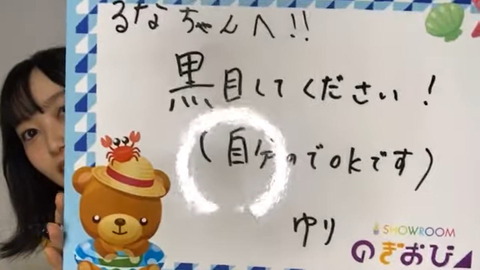 るなちゃんへ!!
黒目してください!
(自分のでokです)
ゆり
SHOWROOM
のぎおび